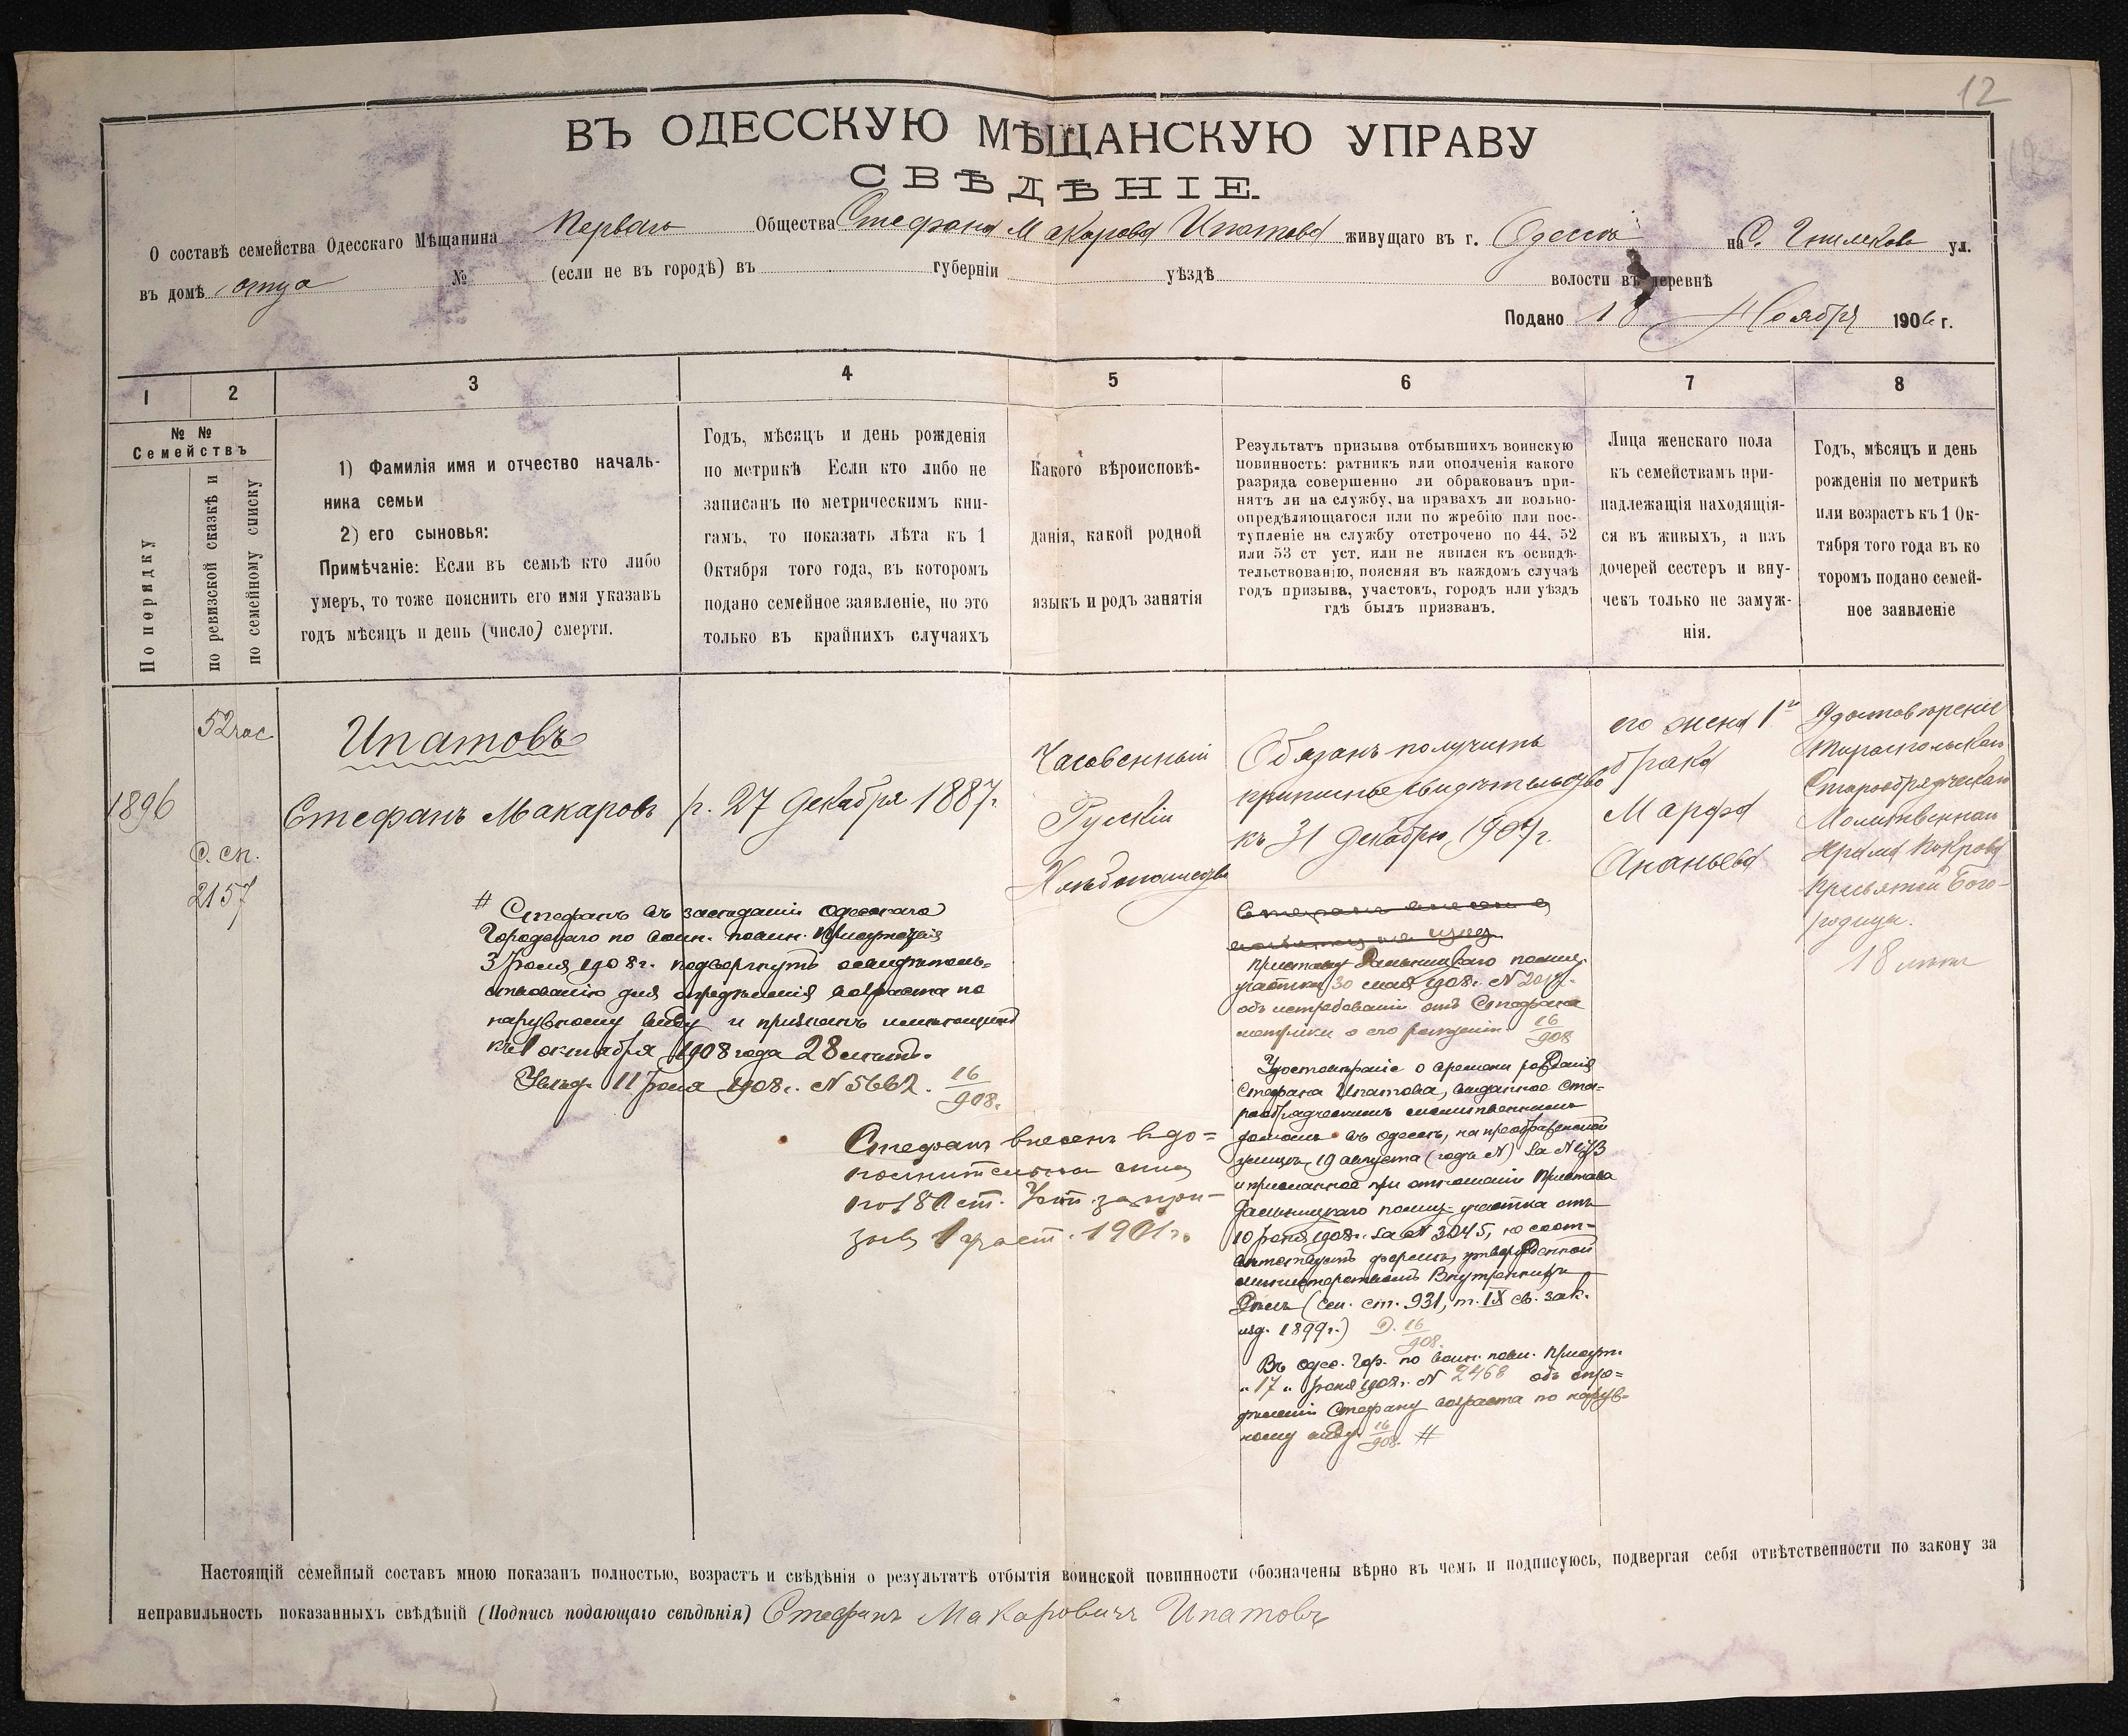 12
ВЪ ОДЕССКУЮ МѢЩАНСКУЮ УПРАВУ
СВѢДѢНІЕ.
О составѣ семейства Одесскаго Мѣщанина Перваго Общества Стефана Макарова Ипатова живущаго въ г. Одессѣ на С. ул.
въ домѣ отца № (если не въ городѣ) въ губерніи уѣздѣ волости въ деревнѣ
Подано 18 Ноября 1906 г.
1 2 3 4 5 6 7 8
№ №
Семействъ
По порядку
по ревизской сказкѣ и
по семейному списку
1) Фамилія имя и отчество началь-
ника семьи
2) его сыновья:
Примѣчаніе: Если въ семьѣ кто либо
умеръ, то тоже пояснить его имя указавъ
годъ мѣсяцъ и день (число) смерти.
Годъ, мѣсяцъ и день рожденія
по метрикѣ Если кто либо не
записанъ по метрическимъ кни-
гамъ, то показать лѣта къ 1
Октября того года, въ которомъ
подано семейное заявленіе, но это
только въ крайнихъ случаяхъ
Какого вѣроисповѣ-
данія, какой родной
языкъ и родъ занятія
Результатъ призыва отбывшихъ воинскую
повинность: ратникъ или ополченія какого
разряда совершенно ли обракованъ при-
нятъ ли на службу, на правахъ ли вольно-
опредѣляющагося или по жребію или пос-
тупленіе на службу отстрочено по 44, 52
или 53 ст уст. или не явился къ освидѣ-
тельствованію, поясняя въ каждомъ случаѣ
годъ призыва, участокъ, городъ или уѣздъ
гдѣ былъ призванъ.
Лица женскаго пола
къ семействамъ при-
надлежащія находящія-
ся въ живыхъ, а изъ
дочерей сестеръ и вну-
чекъ только не замуж-
нія.
Годъ, мѣсяцъ и день
рожденія по метрикѣ
или возрастъ къ 1 Ок-
тября того года въ ко
торомъ подано семей-
ное заявленіе
52 час
1896
С. сп.
2157
Ипатовъ
Стефанъ Макаровъ
р. 27 Декабря 1887г.
Часовенный
Русскій
Хлѣбопашество
Обязанъ получить
приписное свидѣтельство
къ 31 Декабрю 1907г.
его жена 1го
брака
Марфа
Ананьева
Удостовѣреніе
Тираспольскаго
Старообрядческаго
Молитвеннаго
Храма Покрова
Пресвятой Бого-
родицы.
18 лѣтъ
# Стефанъ въ засѣданіи Одесскаго
Городского по воин. повин. Присутствія
3 Іюля 1908г. подвергнутъ освидѣтель-
ствованію для опредѣленія возраста по
наружному виду и признанъ имѣющимъ
къ 1 октября 1908 года 28 лѣтъ.
Увѣд. 11 Іюля 1908г. N 5662. 16/908.
Стефанъ внесенъ в до=
полнительный спис.
по 180 ст. Уст. за при-
зывъ 1 участ. 1901г.
Стефанъ внесенъ в
Приставу Дальницкаго полиц.
участка 30 мая 1908г. N
объ истребованіи отъ Стефана
метрики о его рожденіи 16/908
Удостовѣреніе о времени рожденія
Стефана Ипатова, выданное Ста-
рообрядческимъ молитвеннымъ
домомъ въ Одессѣ, на Преображенской
улицѣ, 19 августа (года N) за N 173
и присланное при отношеніи Пристава
Дальницкаго полиц. участка отъ
10 Іюня 1908г. за N 3045, не соот-
вѣтствуетъ формѣ, утвержденной
министерствомъ Внутреннихъ
Дѣлъ (см. ст. 931, т. IX св. зак.
изд. 1899г.) Д. 16/908.
Въ Одес. Гор. по воин. повин. Присутст.
"17" Іюня 1908г. N 2468 объ опре-
дѣленіи Стефану возраста по наруж-
ному виду 16/908. #
Настоящій семейный составъ мною показанъ полностью, возрастъ и свѣдѣнія о результатѣ отбытія воинской повинности обозначены вѣрно въ чемъ и подписуюсь, подвергая себя отвѣтственности по закону за
неправильность показанныхъ свѣдѣній (Подпись подающаго свѣдѣнія) Стефанъ Макаровичъ Ипатовъ